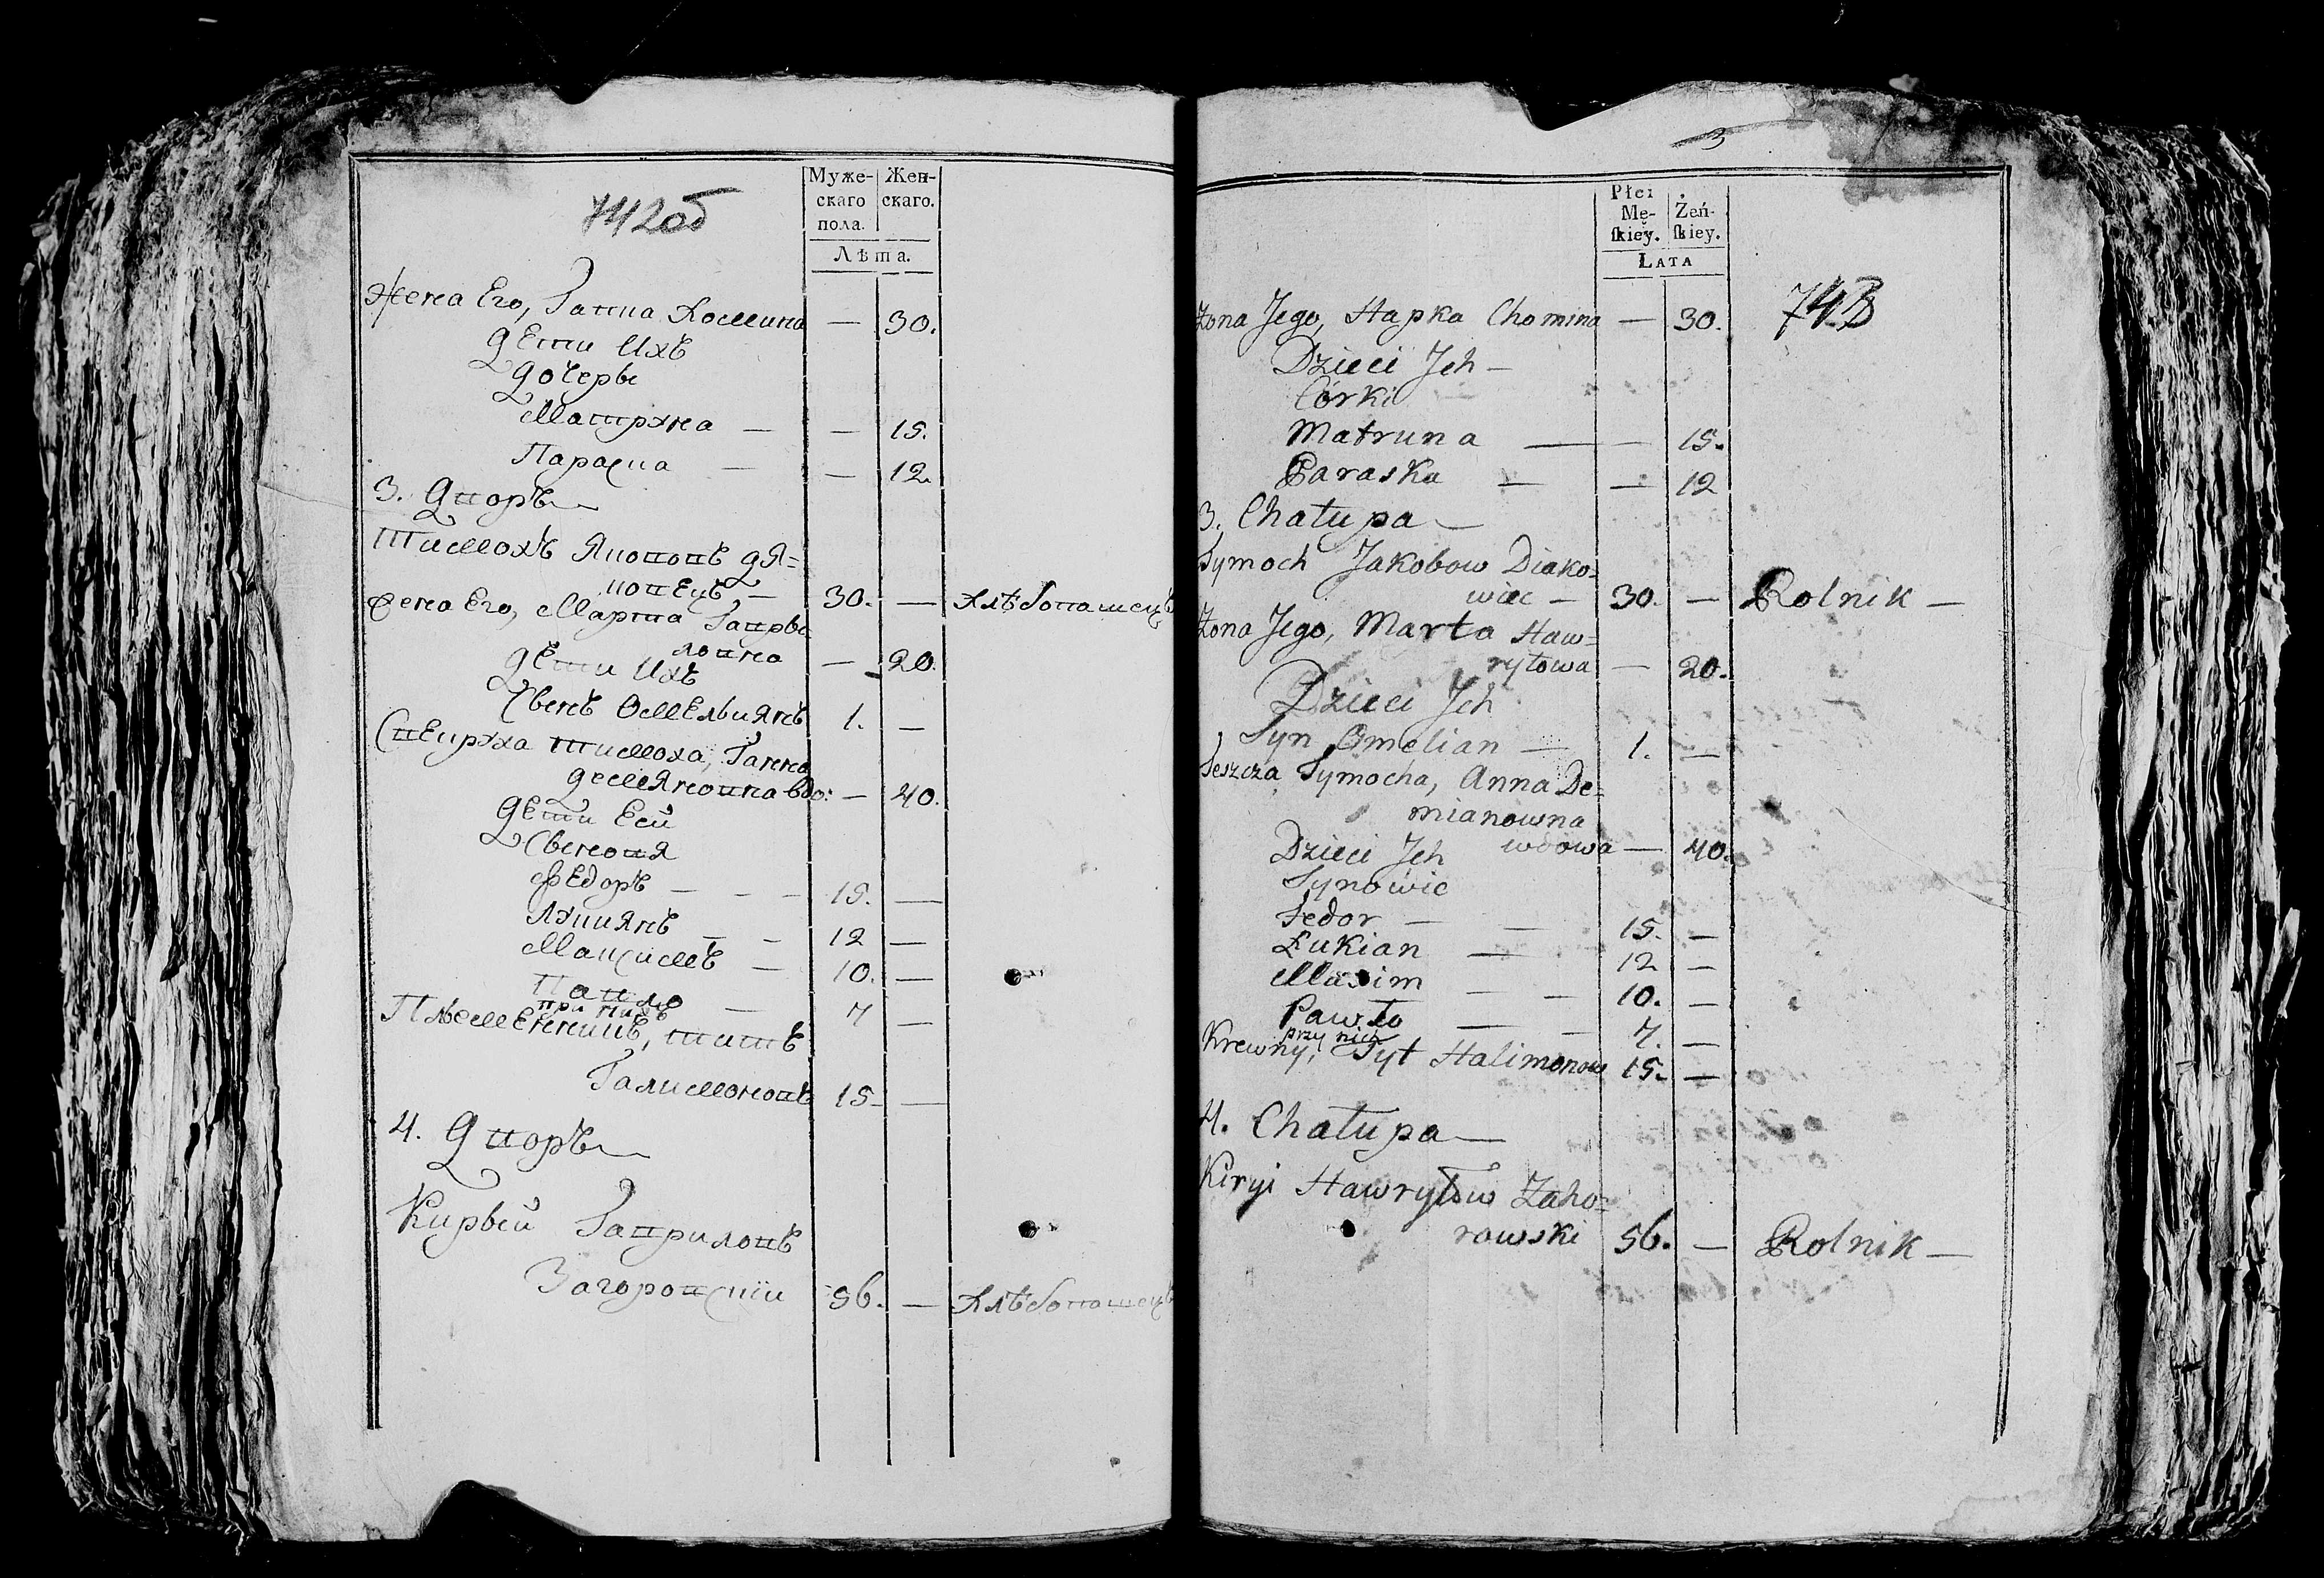 742об
Муже- Жен-
скаго скаго.
пола.
Лѣта.
Жена Его, Гапка Хомина — 30.
дети Ихъ
дочеры
Матруна — — 15.
Параска — — 12.
3. Дворъ
Тимохъ Якововъ дя=
ковецъ — 30. — Хлѣбопашецъ
Жена Его, Марта Гавры
ловна — 20.
дети Ихъ
Сынъ Омельянъ 1. —
Свекруха Тимоха, Ганна
демяновна вдо: — 40.
дети Ееи
Сыновя
Федоръ — — 15. —
Лукиянъ — — 12 —
Максимъ — 10. —
Павло — 7 —
при нихъ
Племенникъ, титъ
Галимоновъ 15 —
4. Дворъ
Кирыи Гавриловъ
Загоровскіи 56. — Хлѣбопашецъ
3
Płci
Mę- Żeń-
skiey. skiey.
LATA
743
Żona Jego, Hapka Chomina — 30.
Dzieci Jch —
Córki
Matruna — — 15.
Paraska — — 12
3. Chałupa —
Tymoch Jakobow Diako=
wiec — 30. — Rolnik —
Żona Jego, Marta Haw=
ryłowa — 20.
Dzieci Jch
Syn Omelian — 1. —
Teszcza Tymocha, Anna De=
mianowna
wdowa — 40.
Dzieci Jch
Synowie
Fedor — — 15. —
Łukian — 12 —
Maxim — — 10. —
Pawło — — 7. —
przy nich
Krewny, Tyt Halimonow 15. —
4. Chałupa —
Kiryi Hawryłow Zaho=
rowski 56. — Rolnik —